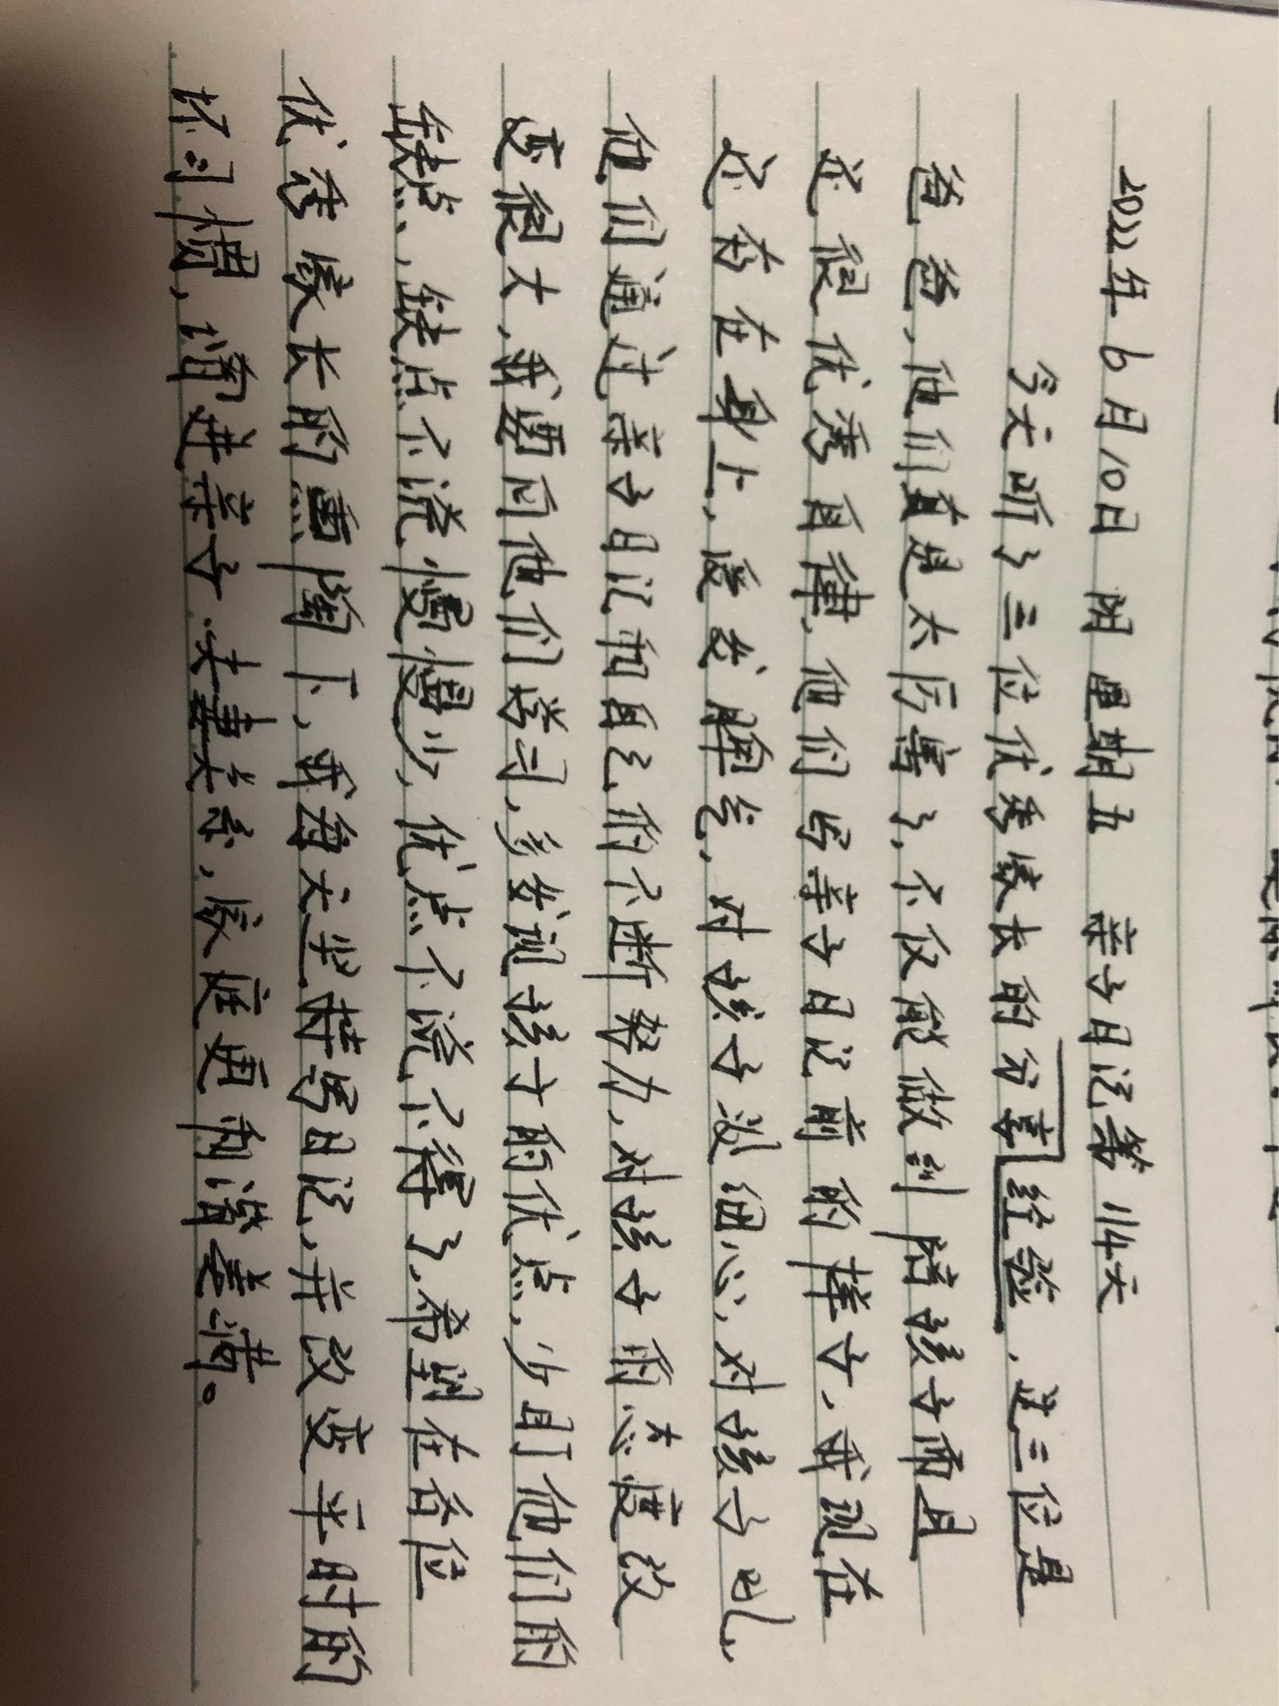 2022年6月10日 阴 星期五 亲子日记第114天
今天听了三位优秀家长的分享经验，这三位是
爸爸，他们真是太厉害了，不仅能做到陪孩子而且
还很优秀自律，他们写亲子日记前的样子，我现在
还有在身上，爱发脾气，对孩子没细心，对孩子吼，
他们通过亲子日记和自己的不断努力，对孩子的态度改
变很大，我要向他们学习，多发现孩子的优点，少盯他们的
缺点，缺点不流慢慢少，优点不流不得了，希望在各位
优秀家长的熏陶下，我每天坚持写日记，并改变平时的
坏习惯，增进亲子.夫妻关系，家庭更和谐美满。